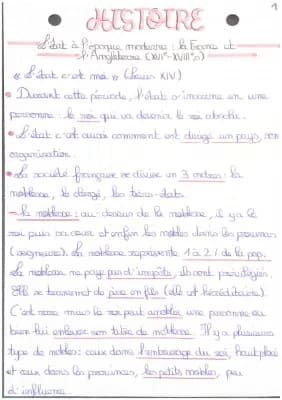 1
HISTOIRE
L'état à l'époque moderne : la France et
l'Angleterre (XVIIe - XVIIIe s)
"L'état c'est moi" (Louis XIV)
Durant cette période, l'état s'incarne en une
personne : le roi qui va devenir le roi absolu.
L'état c'est aussi comment est dirigé un pays, son
organisation.
La société française se divise en 3 ordres : la
noblesse, le clergé, les tiers-état.
- la noblesse : au-dessus de la noblesse, il y a le
roi puis sa cour et enfin les nobles dans les provinces
(seigneurs). La noblesse représente 1 à 2% de la pop.
La noblesse ne paye pas d'impôts, ils sont privilégiés.
Elle se transmet de père en fils (elle est héréditaire).
C'est rare mais le roi peut anoblir une personne ou
bien lui enlever son titre de noblesse. Il y a plusieurs
type de nobles : ceux dans l'entourage du roi, haut placé
et ceux dans les provinces, les petits nobles, peu
d'influence.